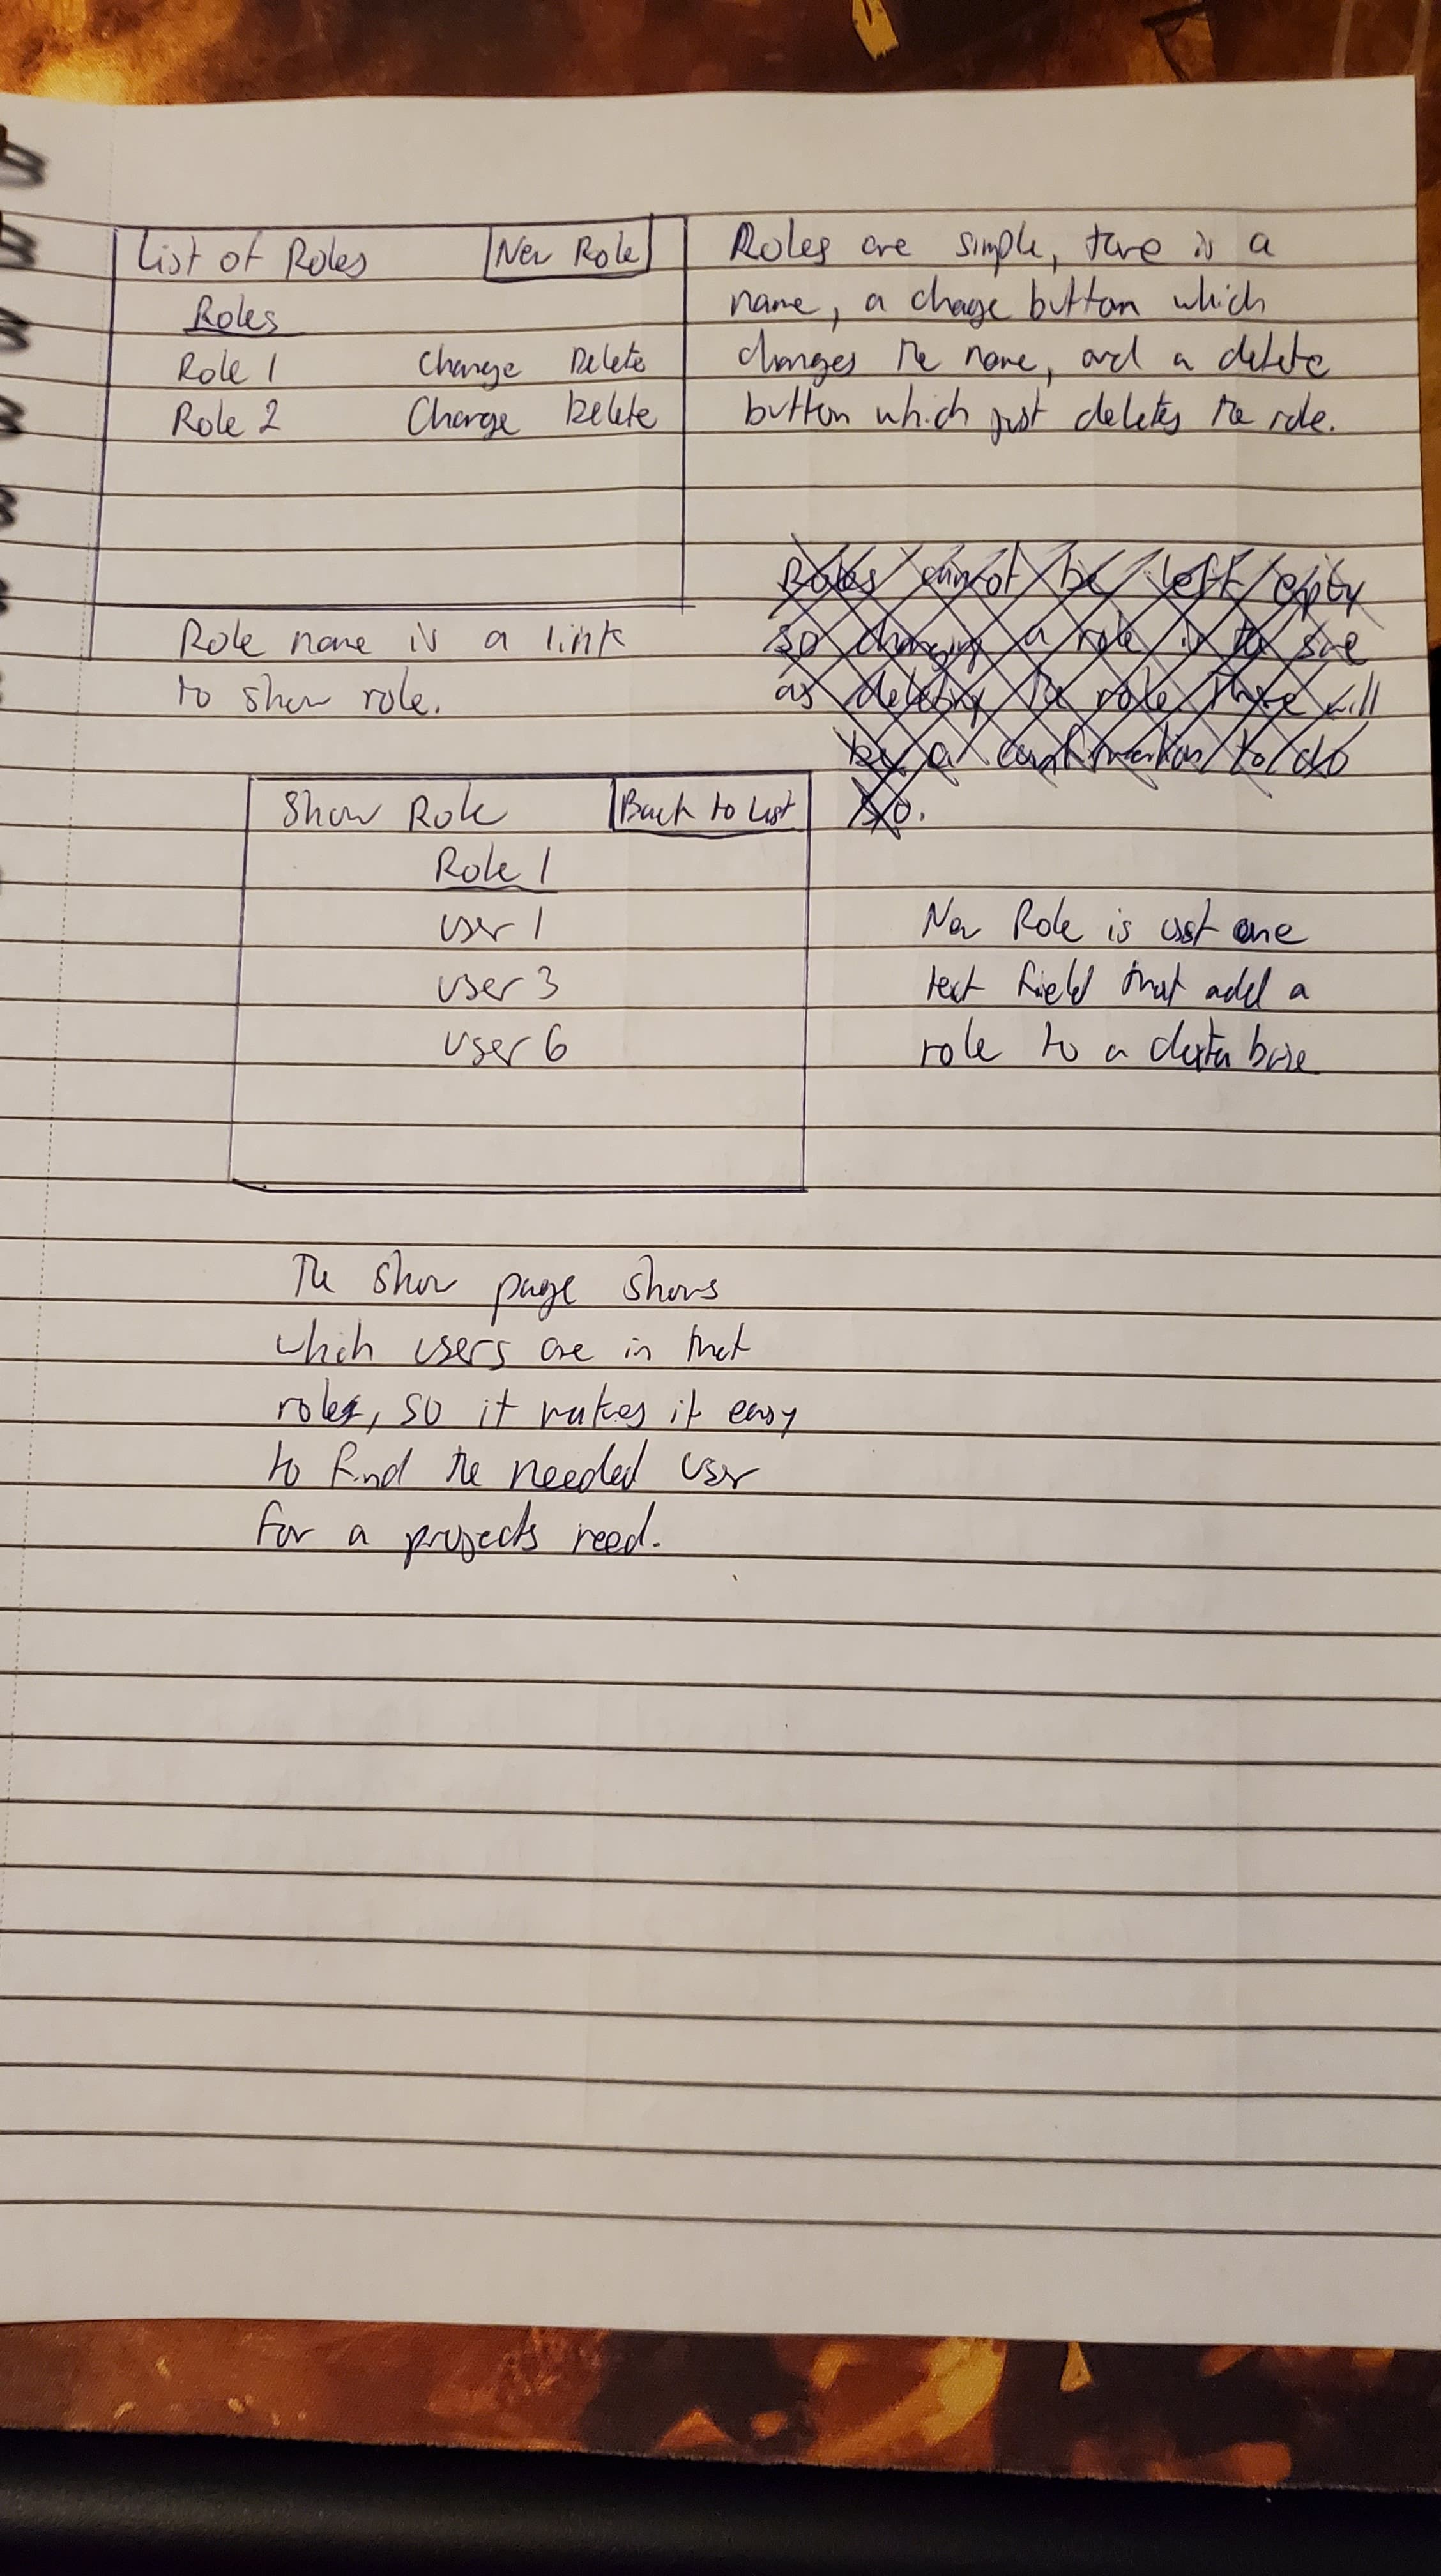 List of Roles [New Role]
Roles
Role 1 Change Delete
Role 2 Change Delete
Roles are simple, there is a
name, a chage button which
changes the name, and a delete
button which just deletes the role.
Role name is a link
to show role.
Roles cannot be left empty
so changing a role is to
as deleting the role There will
be a confirmation to do
so.
Show Role Back to List
Role 1
User 1
User 3
User 6
New Role is just one
text field that add a
role to a database
The show page shows
which users are in that
roles, so it makes it easy
to find the needed user
for a projects need.